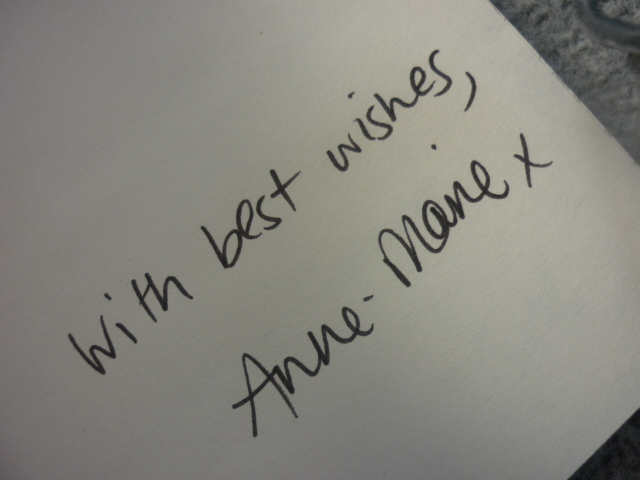 With best wishes,
Anne-Marie x